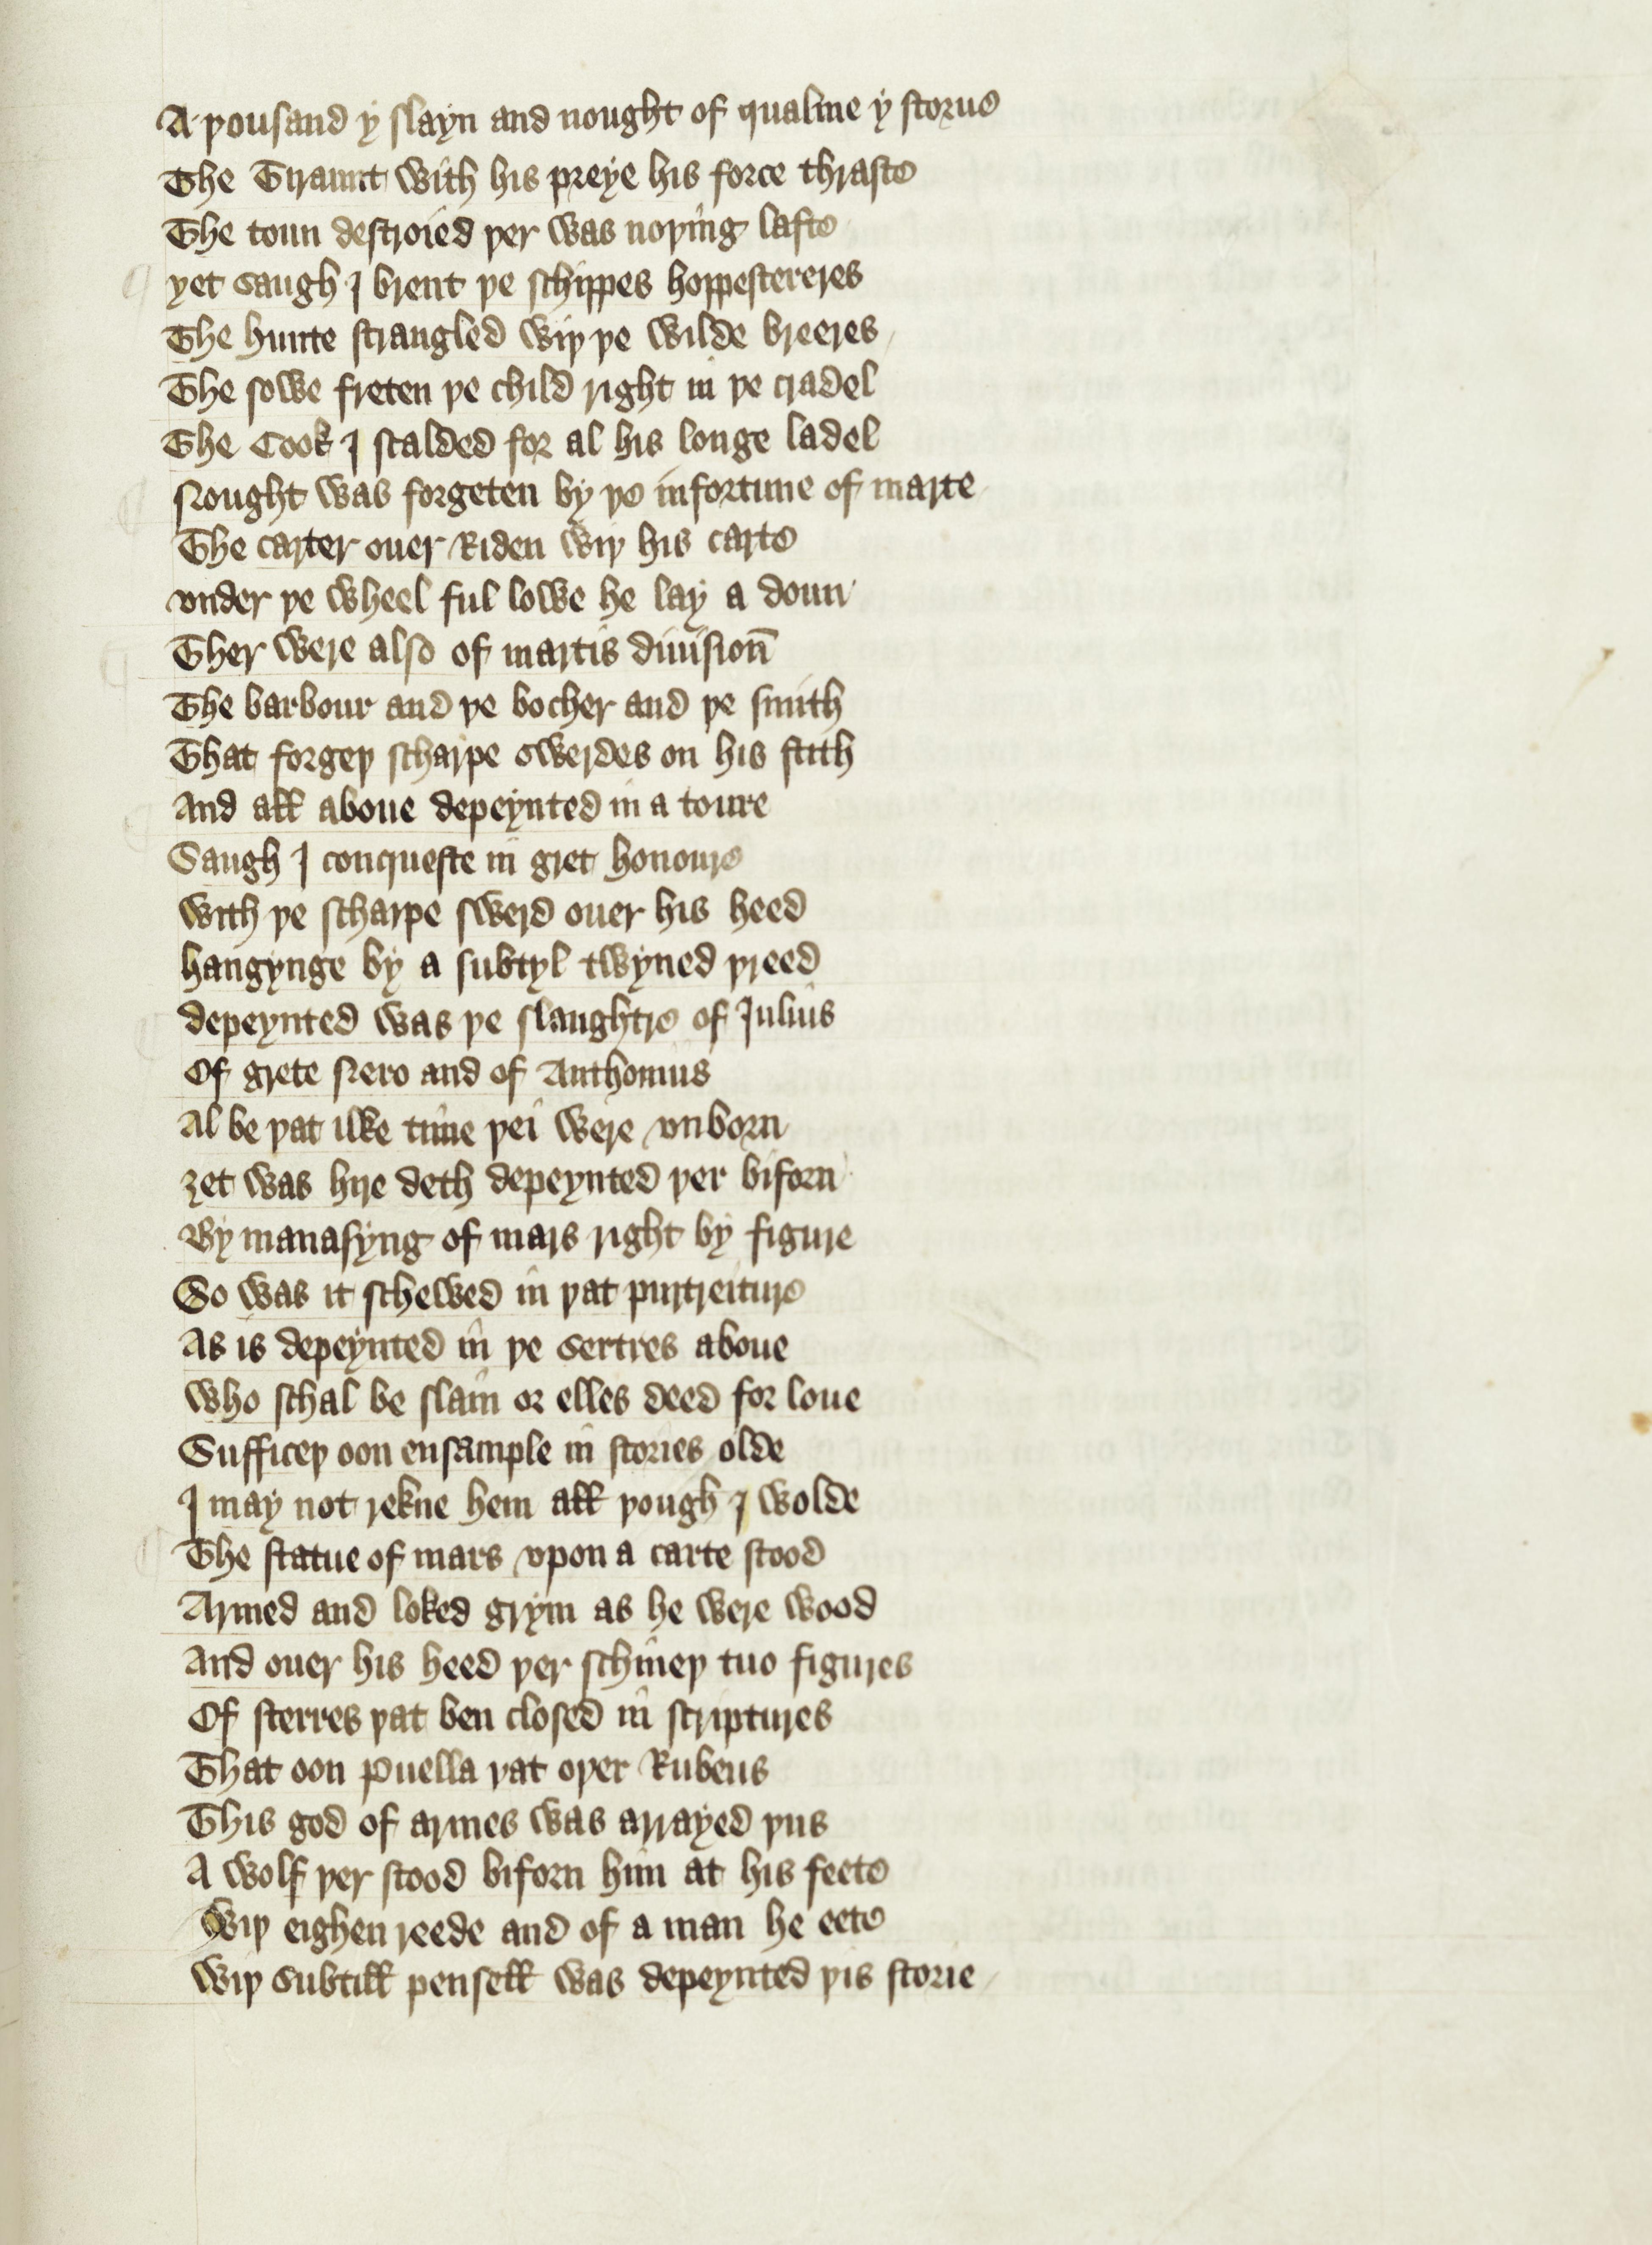 A þousand y slayn and nought of qualme y storue
The Tiraunt with his preye his force thraste
The toun destroied þer was noþing lafte
yet saugh I brent þe schippes hoppestereres
The hunte strangled wiþ þe wilde breeres
The sowe freten þe child right in þe cradel
The Cook I scalded for al his longe ladel
Nought was forgeten by þe infortune of marte
The carter ouer Riden wiþ his carte
vnder þe wheel ful lowe he lay a doun
Ther were also of martis diuisioñ
The barbour and þe bocher and þe smith
That forgeþ scharpe swerdes on his stith
And all aboue depeynted in a toure
Saugh I conqueste in gret honoure
with þe scharpe swerd ouer his heed
hangynge by a subtyl twyned þreed
depeynted was þe slaughtre of Julius
Of grete Nero and of Anthonius
Al be þat ilke time þei were vnborn
ȝet was hire deth depeynted þer biforn
By manasyng of mars right by figure
So was it schewed in þat purtreiture
As is depeynted in þe sertres aboue
who schal be slain or elles deed for loue
Sufficeþ oon ensample in stories olde
I may not rekne hem all þough I wolde
The statue of mars vpon a carte stood
Armed and loked grym as he were wood
And ouer his heed þer schineþ tuo figures
Of sterres þat ben closed in scriptures
That oon Puella þat oþer Rubeus
This god of armes was arrayed þus
A wolf þer stood biforn him at his feete
Wiþ eighen reede and of a man he eete
wiþ subtill pensell was depeynted þis storie